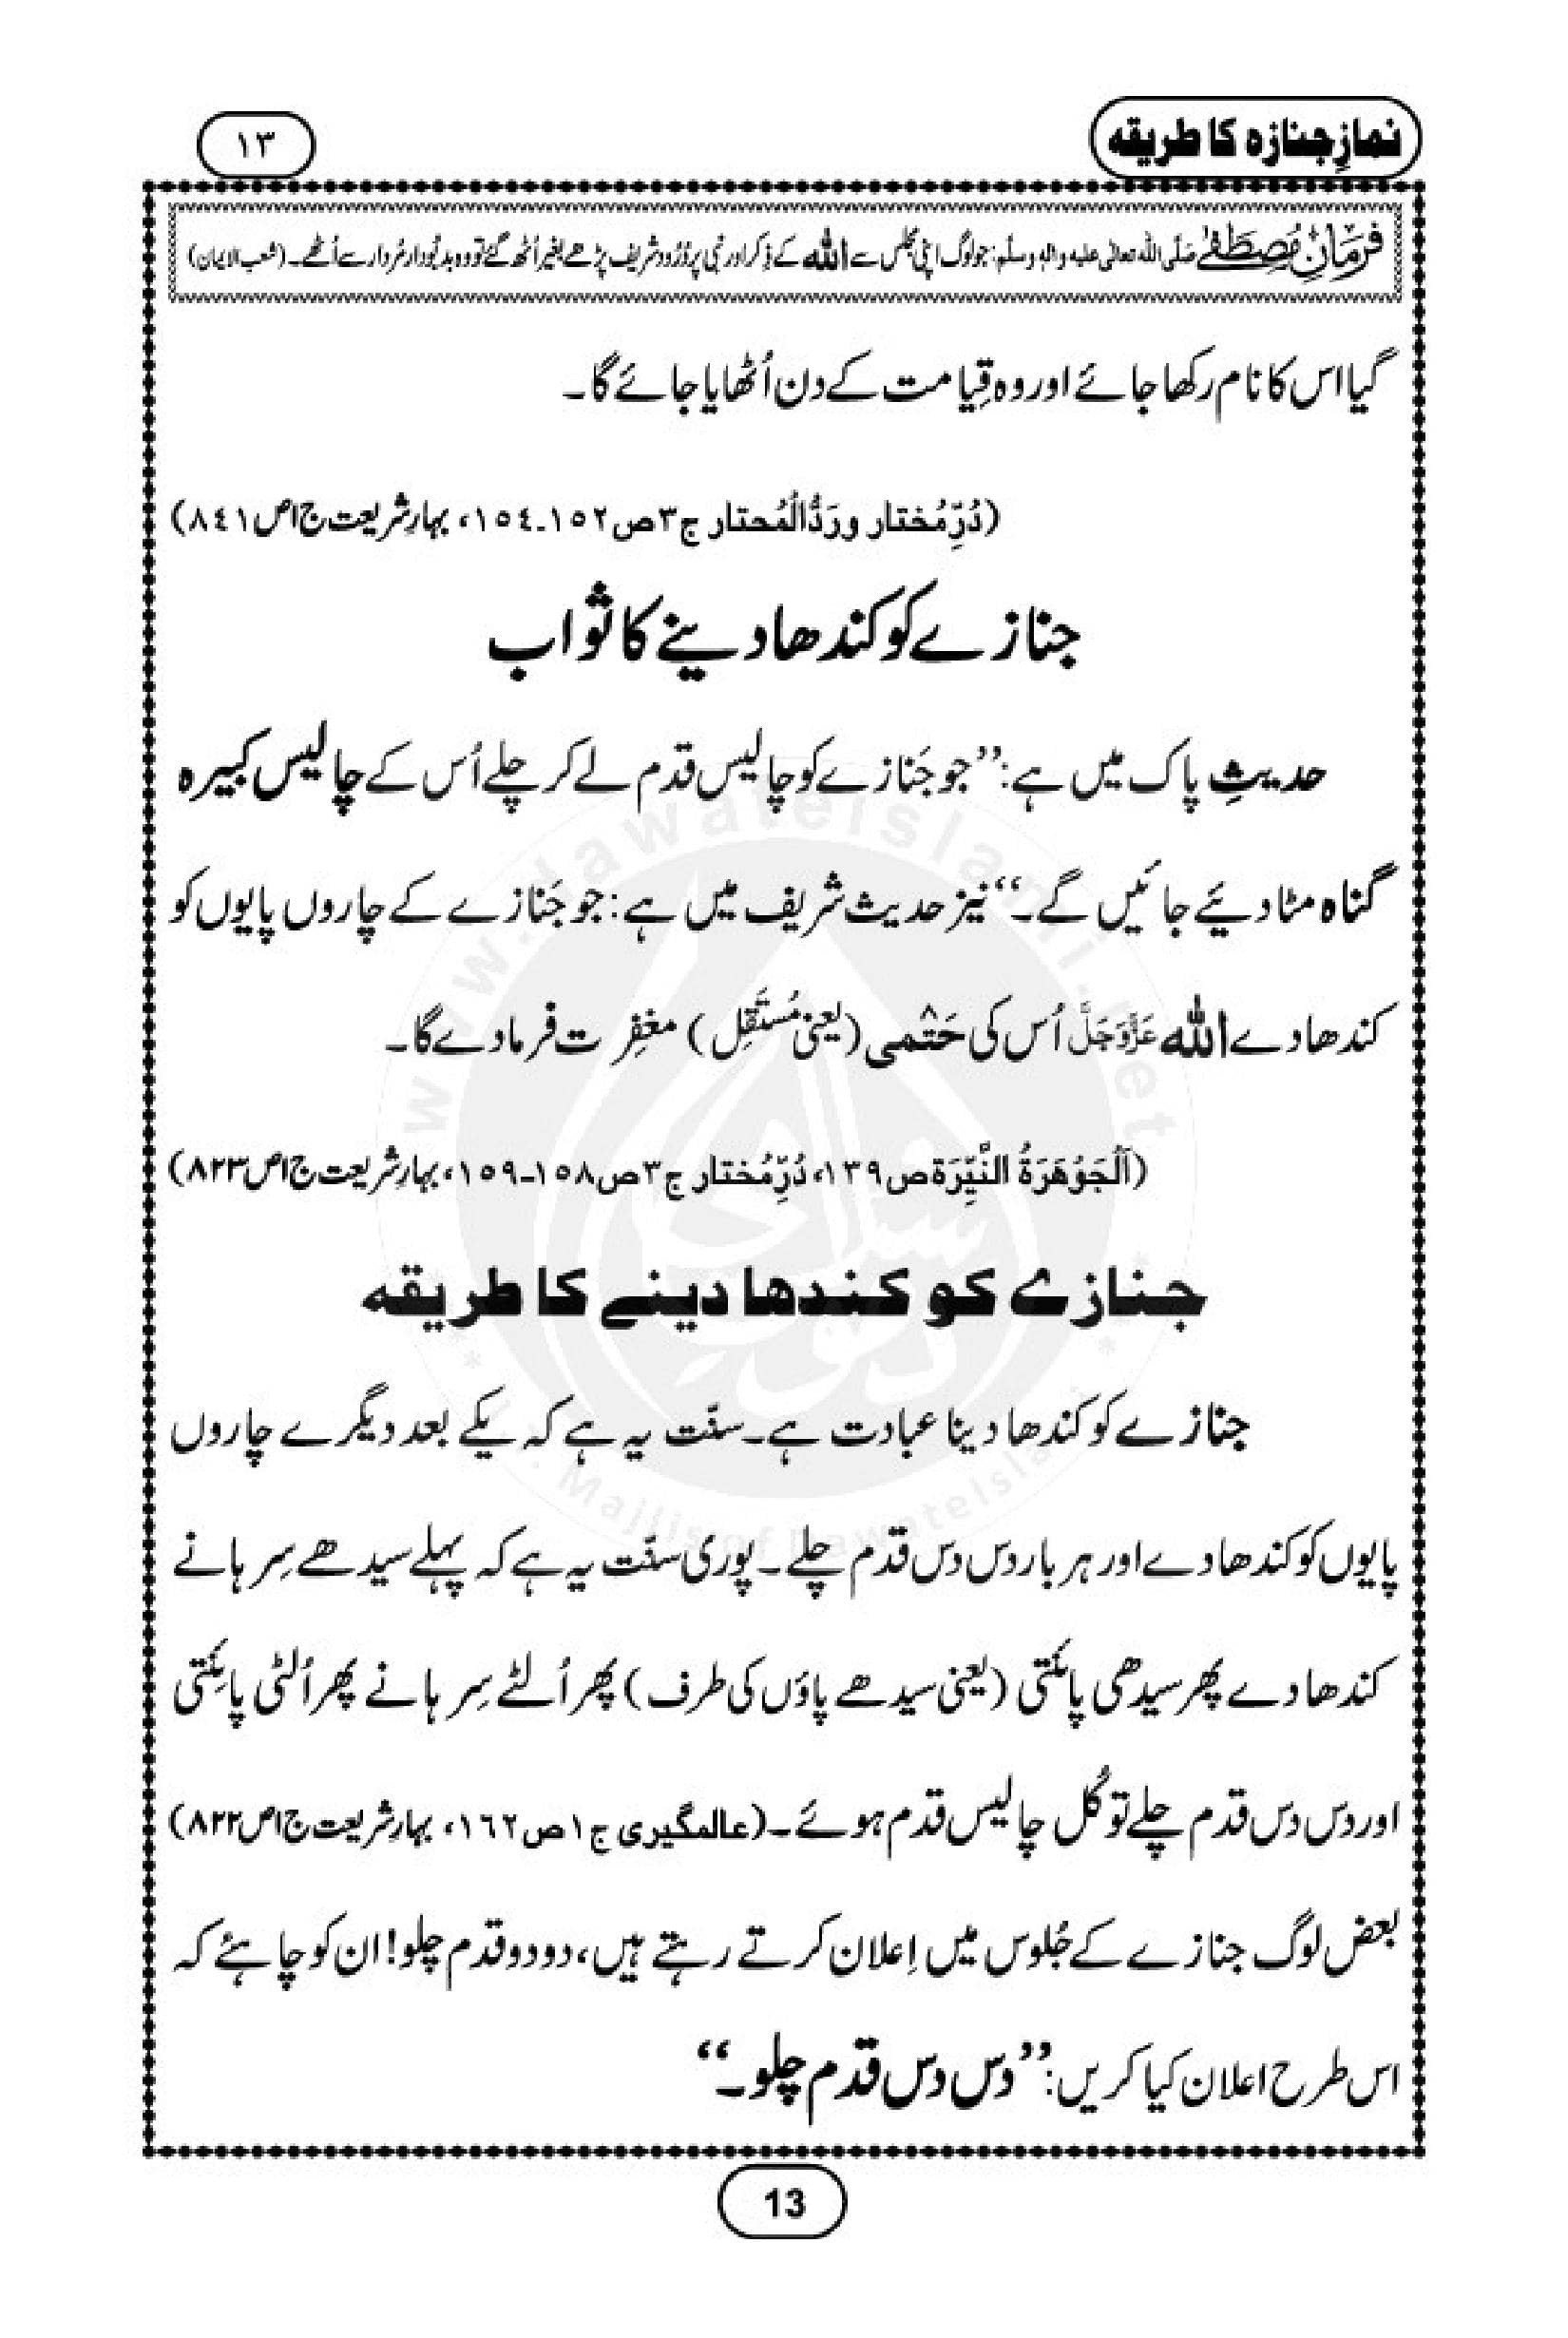 نمازِ جنازہ کا طریقہ
۱۳
فرمانِ مصطفےٰ صلَّی اللہ تعالٰی علیہ والہٖ وسلَّم: جو لوگ اپنی مجلس سے اللہ کے ذِکر اور نبی پر دُرُود شریف پڑھے بغیر اُٹھ گئے تو وہ بدبُودار مُردار سے اُٹھے۔ (شعب الایمان)
گیا اس کا نام رکھا جائے اور وہ قِیامت کے دن اُٹھایا جائے گا۔
(دُرِّمُختار ورَدُّالْمُحتار ج۳ص۱۵۲۔۱۵۴، بہارِ شریعت ج۱ص۸۴۱)
جنازے کو کندھا دینے کا ثواب
حدیثِ پاک میں ہے: ’’جو جَنازے کو چالیس قدم لے کر چلے اُس کے چالیس کبیرہ
گناہ مٹا دیئے جائیں گے۔‘‘ نیز حدیث شریف میں ہے: جو جَنازے کے چاروں پایوں کو
کندھا دے اللہ عَزَّوَجَلَّ اُس کی حَتْمی (یعنی مُسْتَقِل) مغفِرت فرما دے گا۔
(اَلْجَوْہَرَۃُ النَّیِّرَۃ ص۱۳۹، دُرِّمُختار ج۳ص۱۵۸۔۱۵۹، بہارِ شریعت ج۱ص۸۲۳)
جنازے کو کندھا دینے کا طریقہ
جنازے کو کندھا دینا عبادت ہے۔ سنّت یہ ہے کہ یکے بعد دیگرے چاروں
پایوں کو کندھا دے اور ہر بار دس دس قدم چلے۔ پوری سنّت یہ ہے کہ پہلے سیدھے سِرہانے
کندھا دے پھر سیدھی پائنتی (یعنی سیدھے پاؤں کی طرف) پھر اُلٹے سِرہانے پھر اُلٹی پائنتی
اور دس دس قدم چلے تو کُل چالیس قدم ہوئے۔ (عالمگیری ج۱ص۱۶۲، بہارِ شریعت ج۱ص۸۲۲)
بعض لوگ جنازے کے جُلوس میں اِعلان کرتے رہتے ہیں، دو دو قدم چلو! ان کو چاہئے کہ
اس طرح اعلان کیا کریں: ’’دس دس قدم چلو۔‘‘
13
www.dawateislami.net
I.T. Majlis of DawateIslami